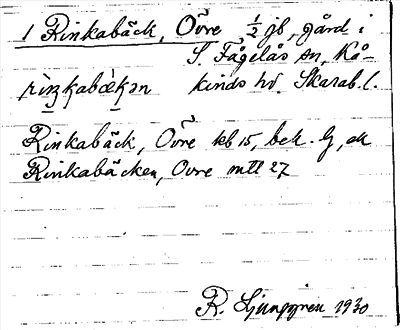 1 Rinkabäck, Övre ½ jb, gård i
S. Fågelås sn, Kå-
kinds hd. Skarab. l.
Rinkabäck, Övre kb 15, bek. G, ek
Rinkabäcken, Ovre mtl 27
R. Ljunggren 1930